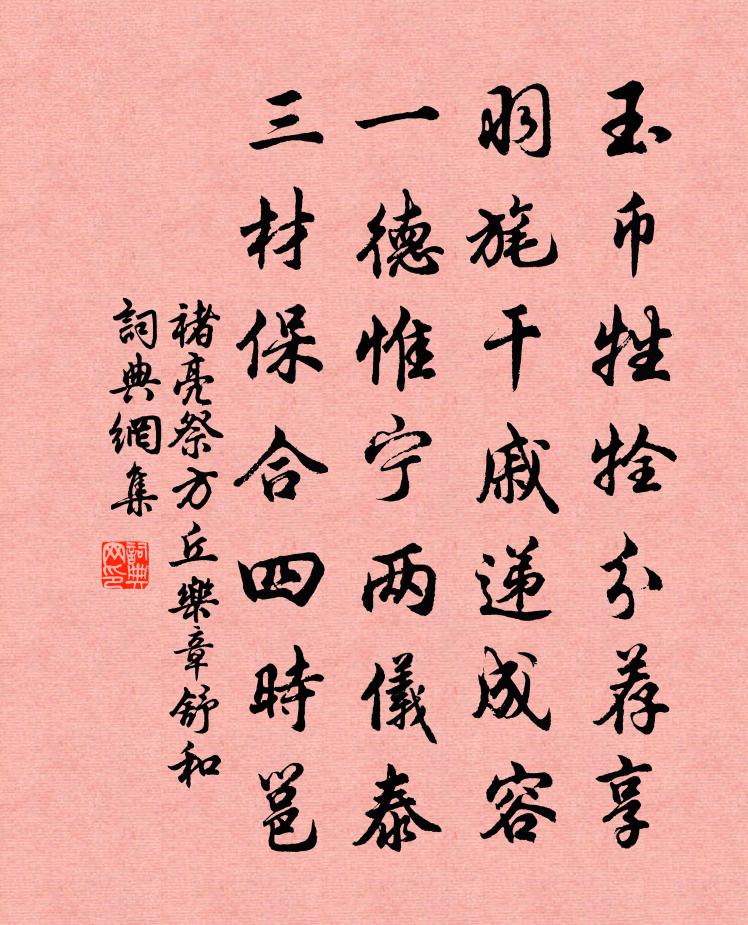 玉币牲牷分荐享
羽旄干戚递成容
一德惟宁两儀泰
三材保合四時邕
褚亮祭方丘樂章舒和
詞典網集
詞典
网印